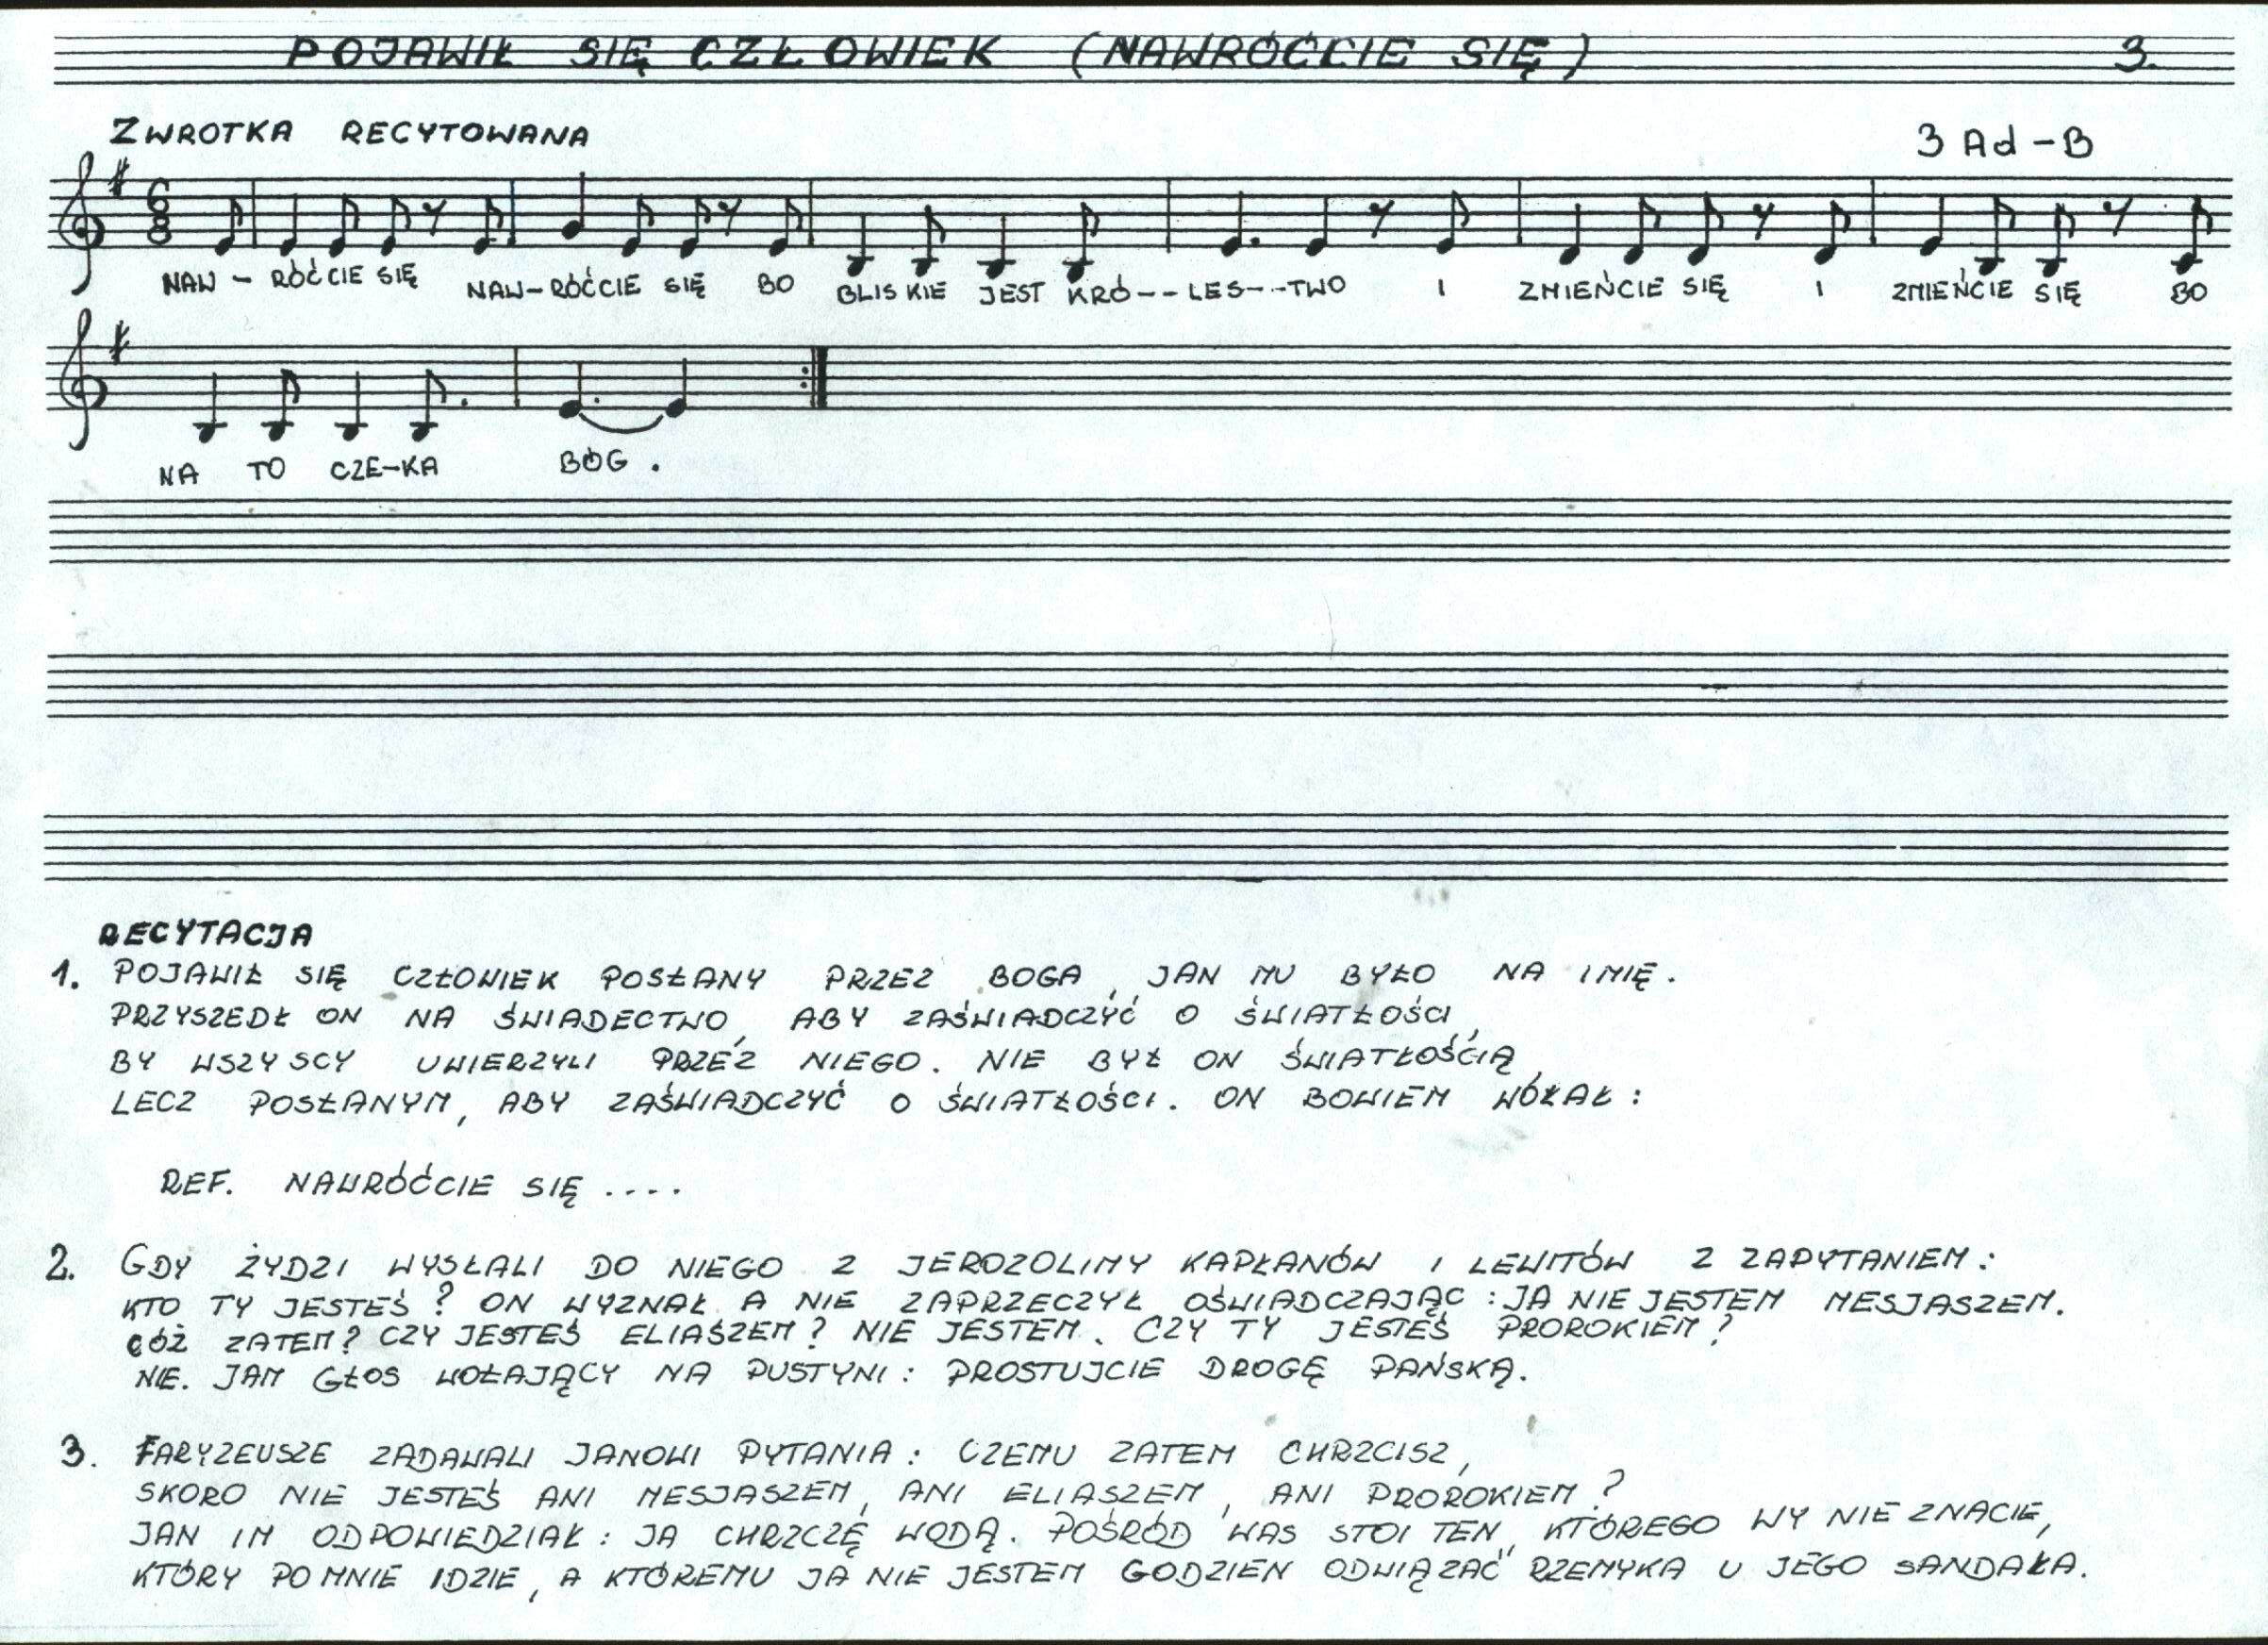 POJAWIŁ SIĘ CZŁOWIEK (NAWRÓĆCIE SIĘ) 3.
ZWROTKA RECYTOWANA 3 Ad-B
6
8
NAW - RÓĆCIE SIĘ NAW-RÓĆCIE SIĘ BO BLISKIE JEST KRÓ--LES--TWO I ZMIEŃCIE SIĘ I ZMIEŃCIE SIĘ BO
NA TO CZE-KA BÓG.
RECYTACJA
1. POJAWIŁ SIĘ CZŁOWIEK POSŁANY PRZEZ BOGA, JAN MU BYŁO NA IMIĘ.
PRZYSZEDŁ ON NA ŚWIADECTWO, ABY ZAŚWIADCZYĆ O ŚWIATŁOŚCI,
BY WSZYSCY UWIERZYLI PRZEZ NIEGO. NIE BYŁ ON ŚWIATŁOŚCIĄ,
LECZ POSŁANYM, ABY ZAŚWIADCZYĆ O ŚWIATŁOŚCI. ON BOWIEM WÓŁAŁ:
REF. NAWRÓĆCIE SIĘ ....
2. GDY ŻYDZI WYSŁALI DO NIEGO Z JEROZOLIMY KAPŁANÓW I LEWITÓW Z ZAPYTANIEM:
KTO TY JESTEŚ? ON WYZNAŁ A NIE ZAPRZECZYŁ OŚWIADCZAJĄC: JA NIE JESTEM MESJASZEM.
CÓŻ ZATEM? CZY JESTEŚ ELIASZEM? NIE JESTEM. CZY TY JESTEŚ PROROKIEM?
NIE. JAM GŁOS WOŁAJĄCY NA PUSTYNI: PROSTUJCIE DROGĘ PAŃSKĄ.
3. FARYZEUSZE ZADAWALI JANOWI PYTANIA: CZEMU ZATEM CHRZCISZ,
SKORO NIE JESTEŚ ANI MESJASZEM, ANI ELIASZEM, ANI PROROKIEM?
JAN IM ODPOWIEDZIAŁ: JA CHRZCZĘ WODĄ. POŚRÓD WAS STOI TEN, KTÓREGO WY NIE ZNACIE,
KTÓRY PO MNIE IDZIE, A KTÓREMU JA NIE JESTEM GODZIEN ODWIĄZAĆ RZEMYKA U JEGO SANDAŁA.